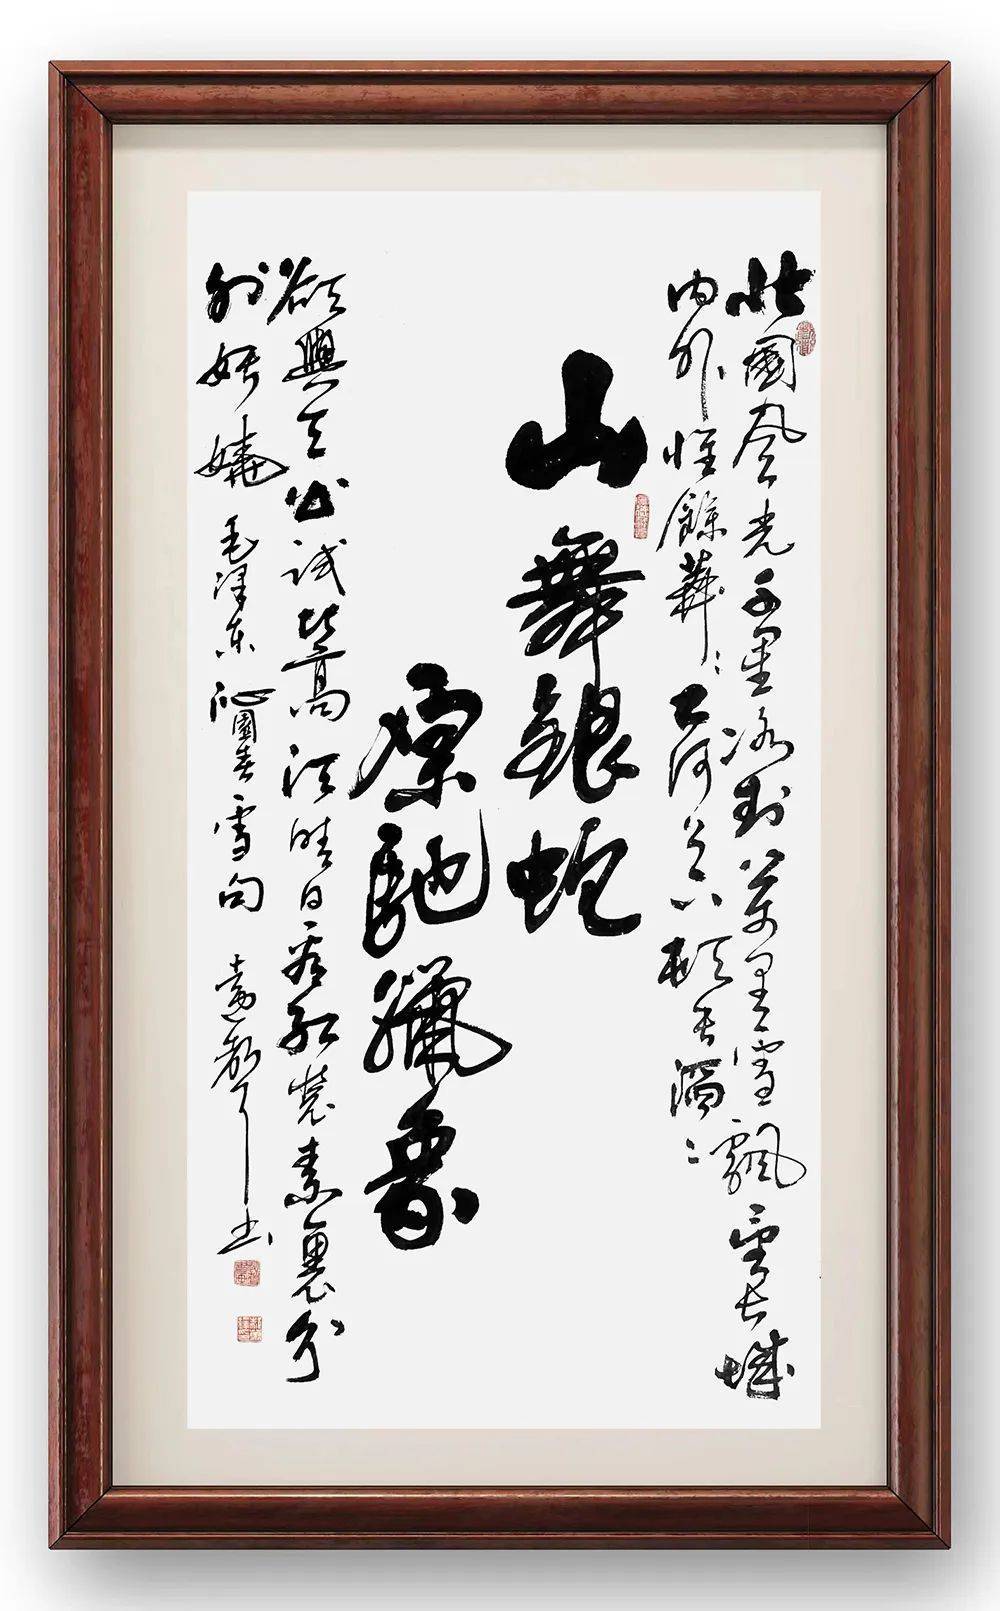 北國風光千里冰封萬里雪飄望長城
内外惟餘莽〻大河上下頓失滔〻
山舞銀蛇
原馳臘象
欲與天公試比高須晴日看紅裝素裹分
外妖嬈 毛澤東沁園春雪句 書